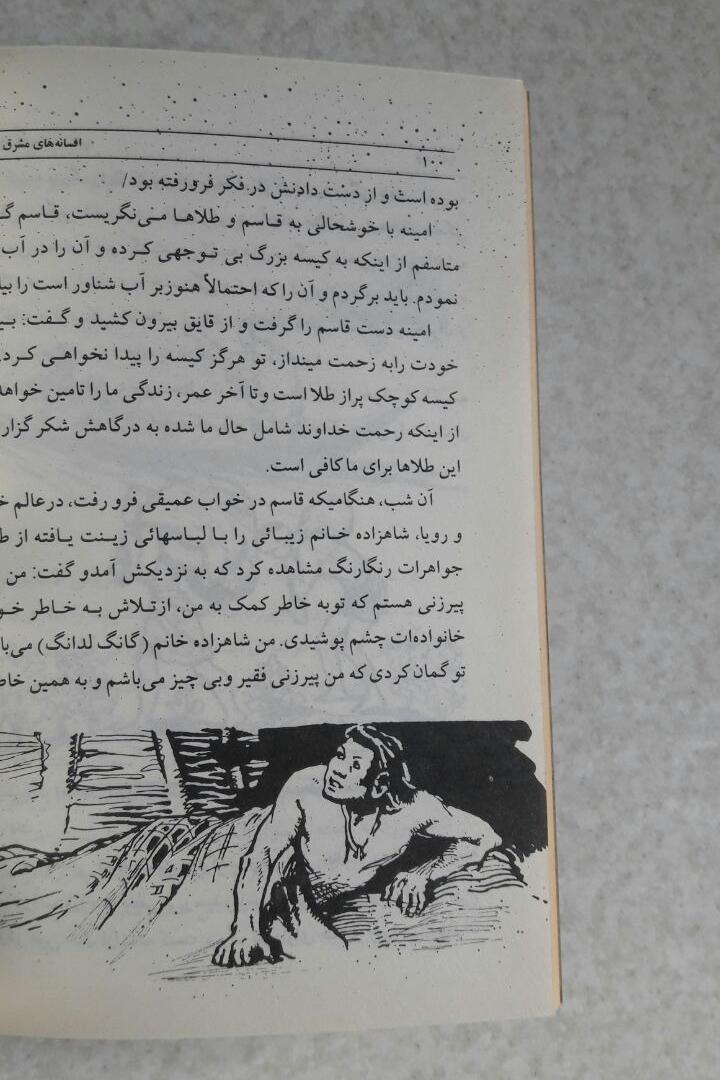 ۱۰۰ افسانه‌های مشرق
بوده است و از دست دادنش در فکر فرو رفته بود/
امینه با خوشحالی به قاسم و طلاها می‌نگریست، قاسم
متاسفم از اینکه به کیسه بزرگ بی توجهی کرده و آن را در آب
نمودم. باید برگردم و آن را که احتمالاً هنوز بر آب شناور است را
امینه دست قاسم را گرفت و از قایق بیرون کشید و گفت:
خودت رابه زحمت مینداز، تو هرگز کیسه را پیدا نخواهی
کیسه کوچک پراز طلا است و تا آخر عمر، زندگی ما را تامین
از اینکه رحمت خداوند شامل حال ما شده به درگاهش شکر
این طلاها برای ما کافی است.
آن شب، هنگامیکه قاسم در خواب عمیقی فرو رفت، در عالم
و رویا، شاهزاده خانم زیبائی را با لباسهائی زینت یافته از
جواهرات رنگارنگ مشاهده کرد که به نزدیکش آمدو گفت: من
پیرزنی هستم که توبه خاطر کمک به من، ازتلاش به خاطر
خانواده‌ات چشم پوشیدی. من شاهزاده خانم (گانگ لدانگ)
تو گمان کردی که من پیرزنی فقیر وبی چیز می‌باشم و به همین